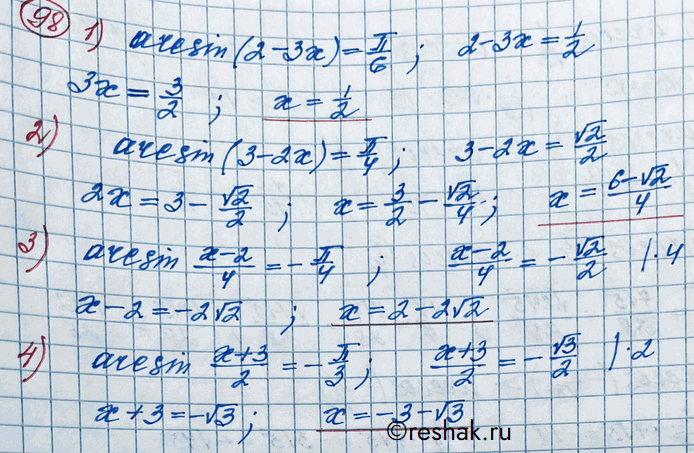 98 1) arcsin(2-3x)=π/6; 2-3x=1/2
3x=3/2; x=1/2
2) arcsin(3-2x)=π/4; 3-2x=√2/2
2x=3-√2/2; x=3/2-√2/4; x=(6-√2)/4
3) arcsin (x-2)/4=-π/4; (x-2)/4=-√2/2 |·4
x-2=-2√2; x=2-2√2
4) arcsin (x+3)/2=-π/3; (x+3)/2=-√3/2 |·2
x+3=-√3; x=-3-√3
©reshak.ru